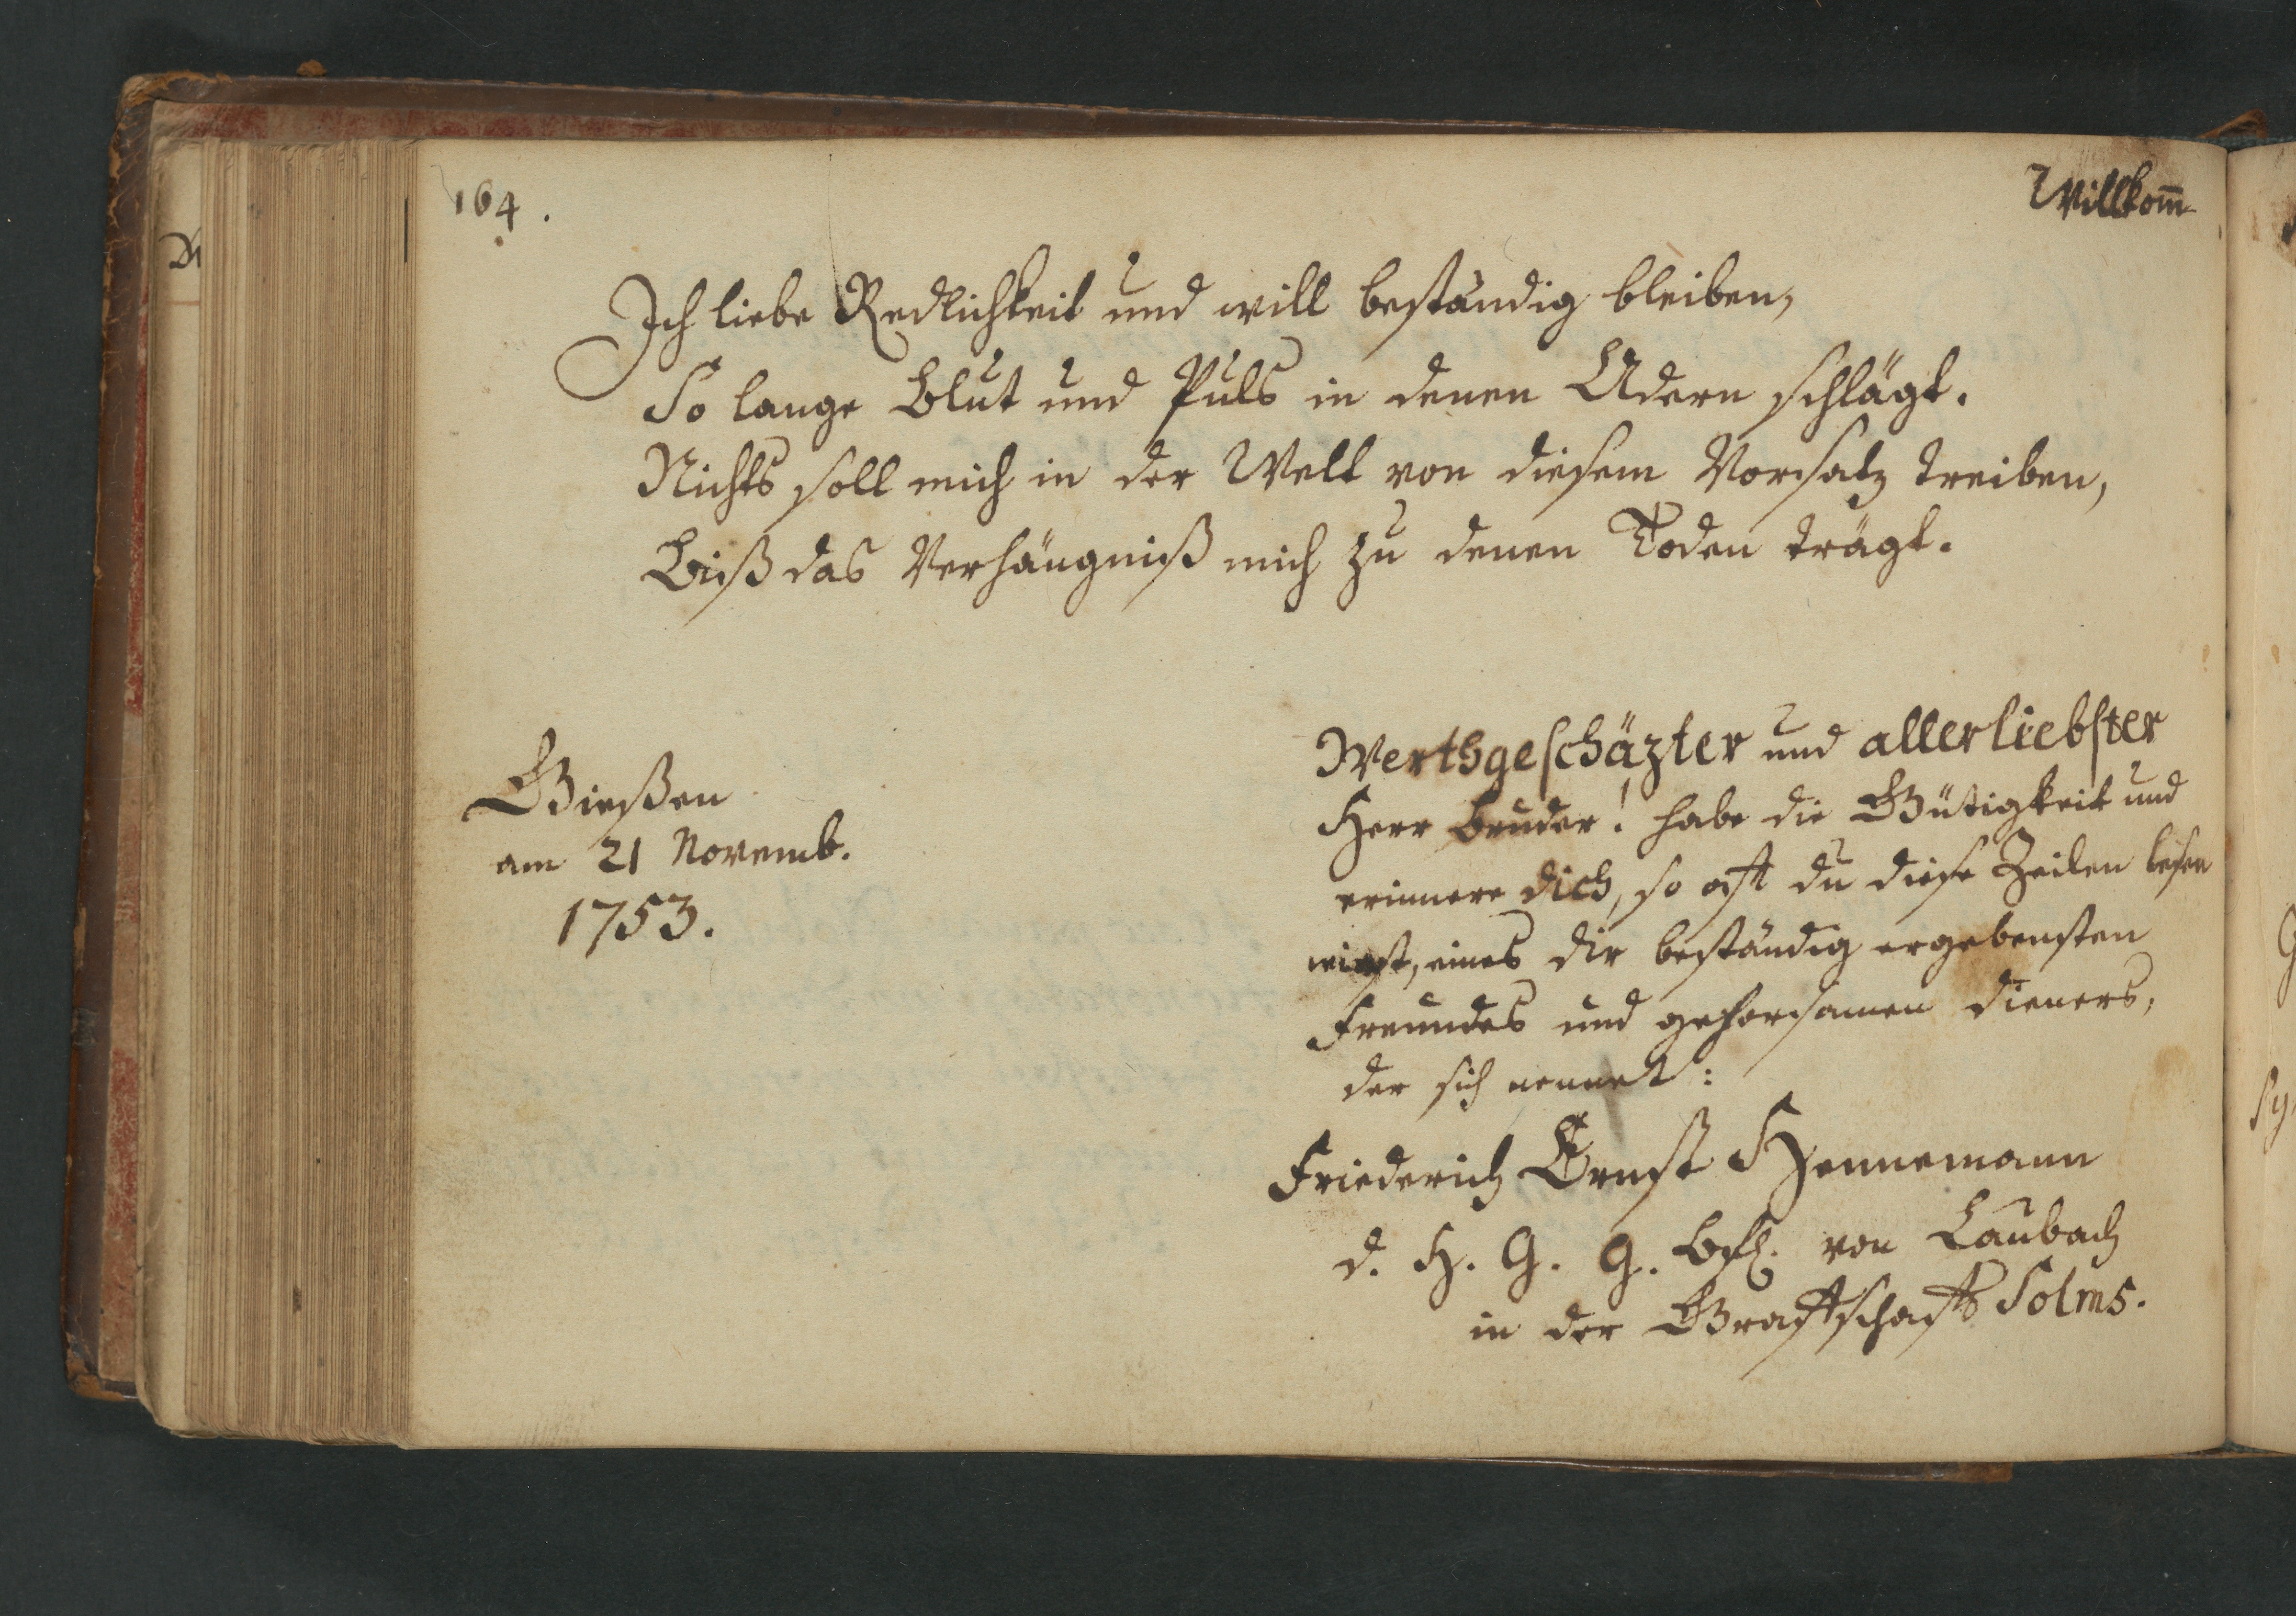 164.
Willkom̅
Ich liebe Redlichkeit und will beständig bleiben,
So lange Blut und Puls in denen Adern schlägt.
Nichts soll mich in der Welt von diesem Vorsatz treiben,
Biß das Verhängniß mich zu denen Toden trägt.
Gießen
am 21 Novemb.
1753.
Werthgeschäzter und allerliebster
Herr Bruder! habe die Gütigkeit und
erinnere dich, so oft du diese Zeilen lesen
wirst, eines dir beständig ergebensten
Freundes und gehorsamen Dieners,
der sich nennet:
Friederich Ernst Hennemann
d. H. G. G. Bfl. von Laubach
in der Graffschafft Solms.